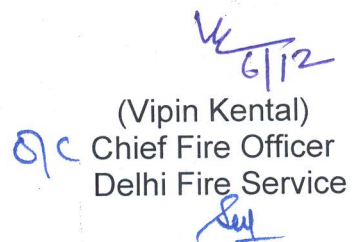 6/12
(Vipin Kental)
O/C Chief Fire Officer
Delhi Fire Service